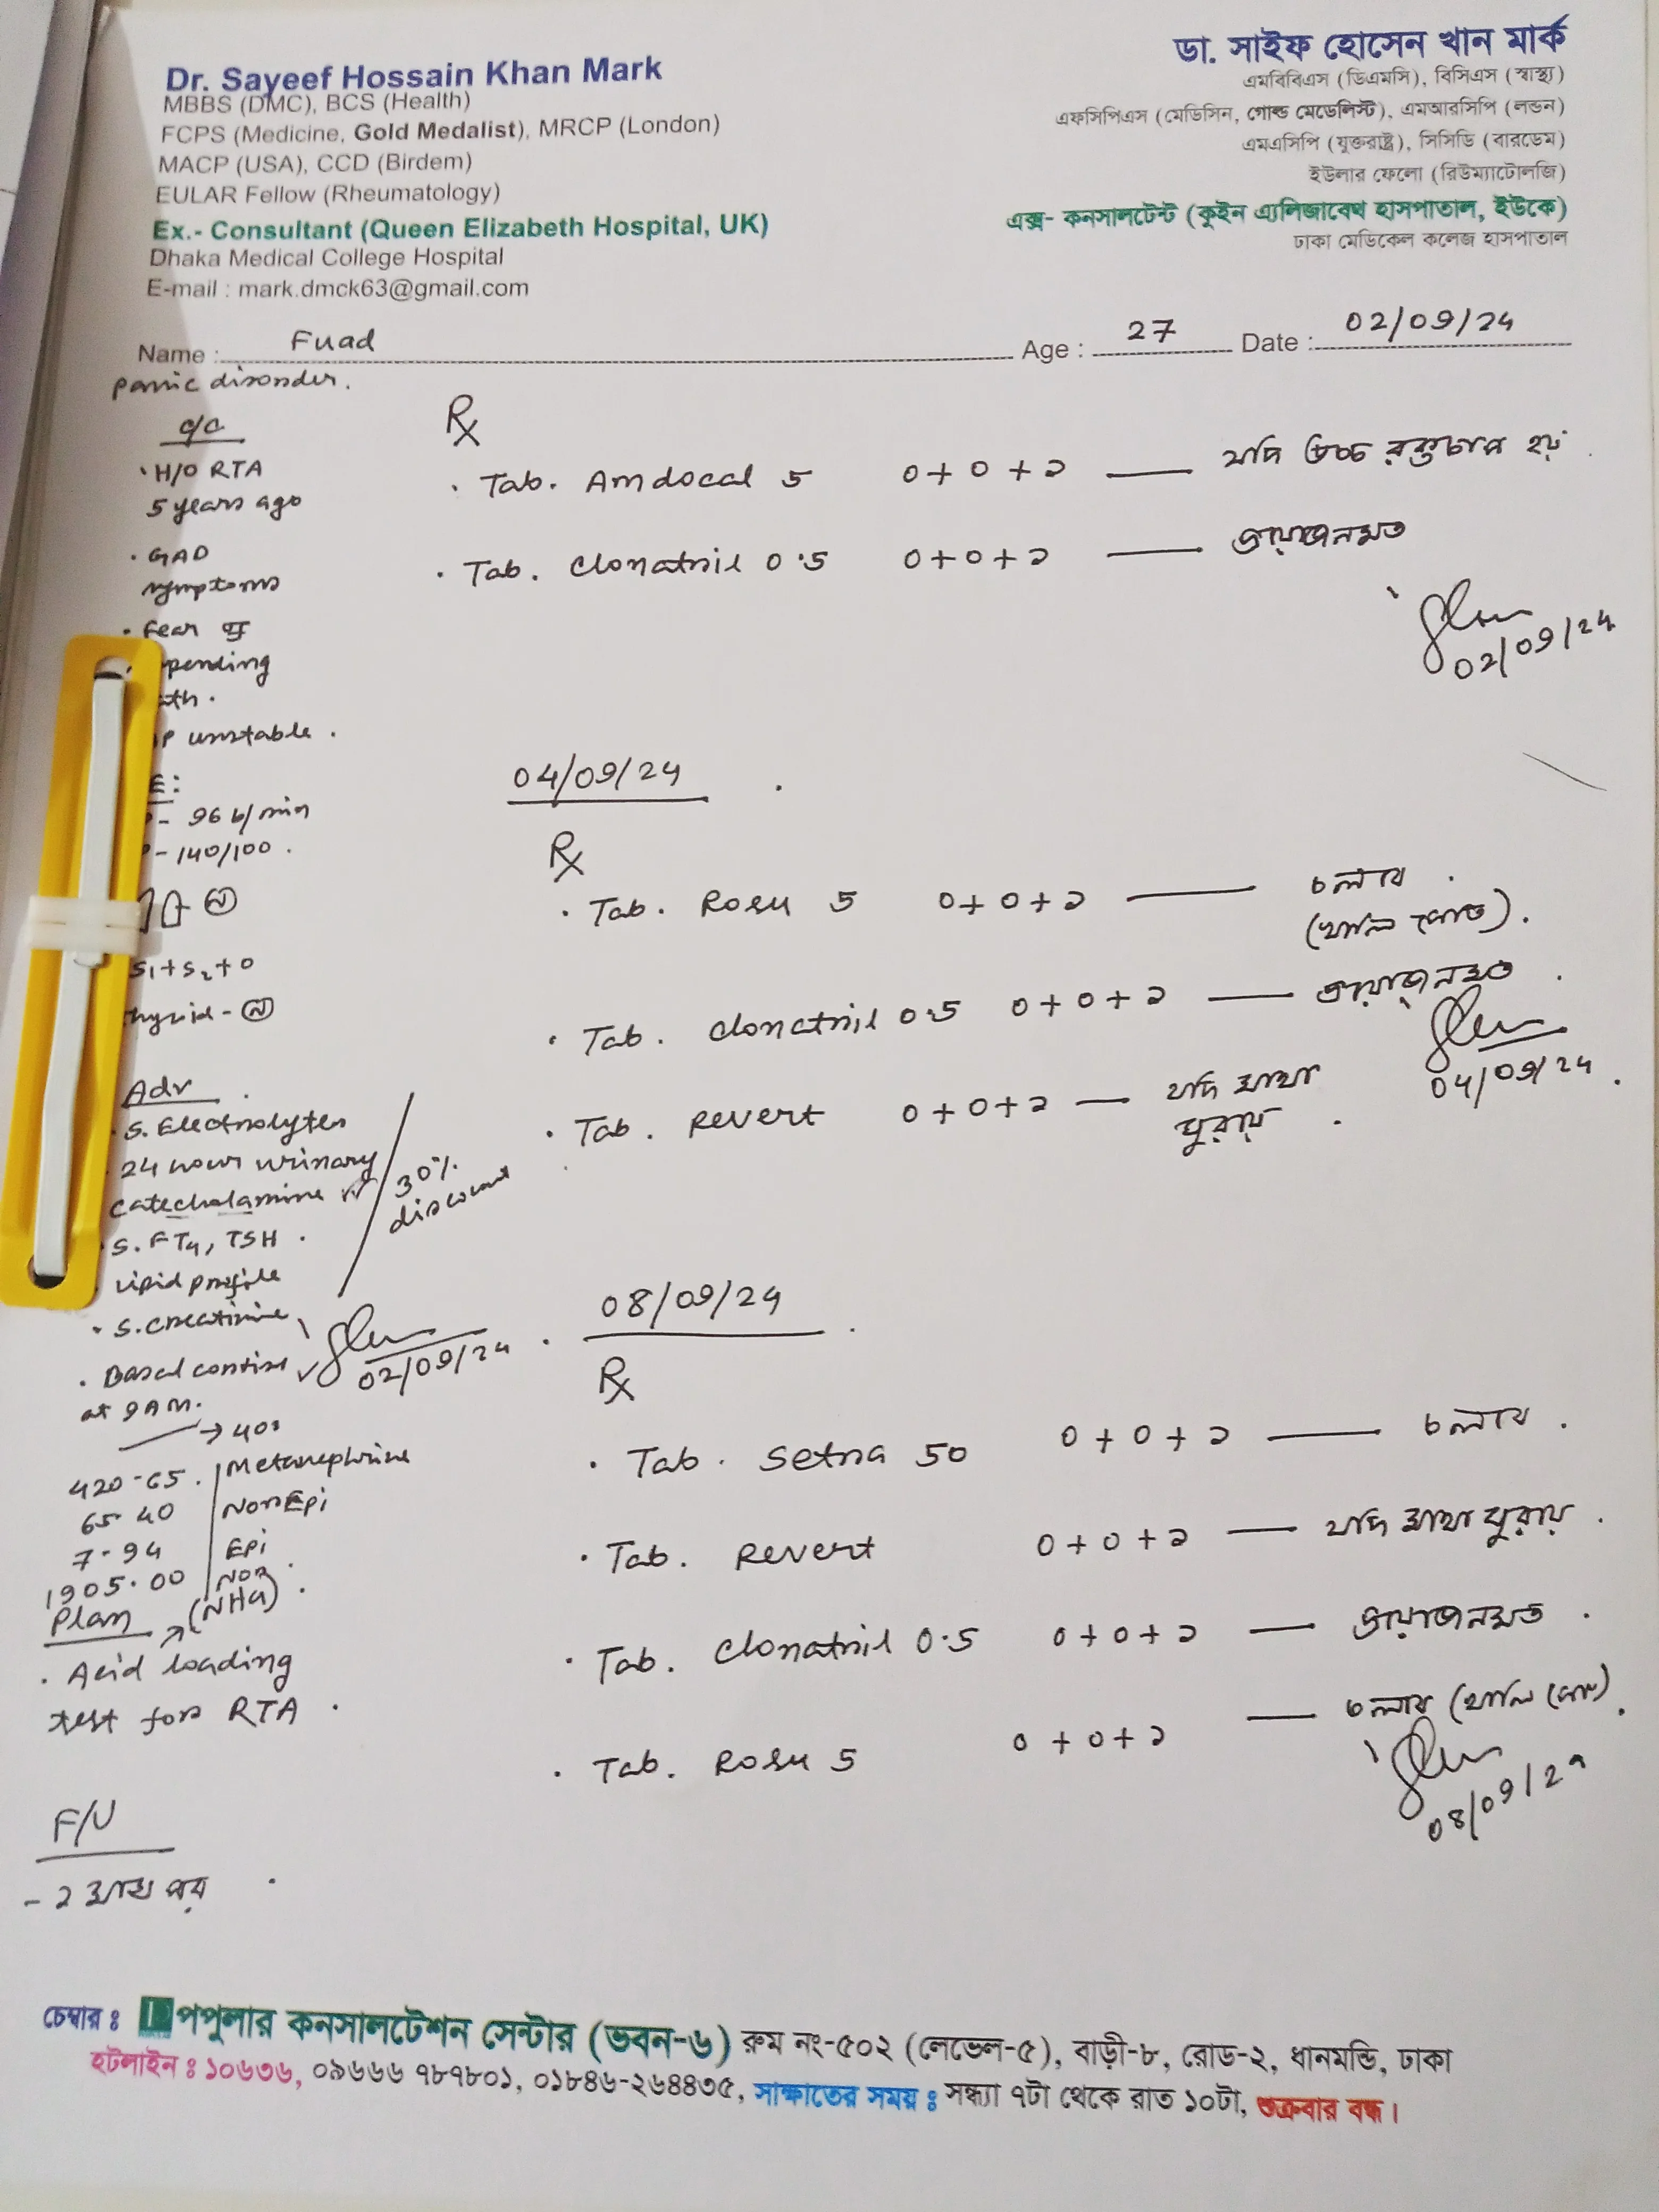 Dr. Sayeef Hossain Khan Mark
MBBS (DMC), BCS (Health)
FCPS (Medicine, Gold Medalist), MRCP (London)
MACP (USA), CCD (Birdem)
EULAR Fellow (Rheumatology)
Ex.- Consultant (Queen Elizabeth Hospital, UK)
Dhaka Medical College Hospital
E-mail : mark.dmck63@gmail.com
ডা. সাইফ হোসেন খান মার্ক
এমবিবিএস (ডিএমসি), বিসিএস (স্বাস্থ্য)
এফসিপিএস (মেডিসিন, গোল্ড মেডেলিস্ট), এমআরসিপি (লন্ডন)
এমএসিপি (যুক্তরাষ্ট্র), সিসিডি (বারডেম)
ইউলার ফেলো (রিউম্যাটোলজি)
এক্স- কনসালটেন্ট (কুইন এ্যলিজাবেথ হাসপাতাল, ইউকে)
ঢাকা মেডিকেল কলেজ হাসপাতাল
Name : Fuad Age : 27 Date : 02/09/24
panic disorder.
c/c
H/O RTA
5 years ago
• GAD
symptoms
• Fear of
pending
th.
P unstable.
E:
- 96 b/min
- 140/100.
S₁+S₂+0
hyroid - N
Adv
• S. Electrolytes
24 hour urinary
catecholamine
• S. FT4, TSH.
Lipid profile
• S. creatinine
30% discount
• Basal cortisol
at 9 AM.
02/09/24
→ 40
420-65. Metanephrine
65-40 NorEpi
7-94 Epi
1905.00 Nor
Plan (NH4).
• Acid loading
test for RTA.
F/U
- ২ মাস পর
Rx
• Tab. Amdocal 5 ০+০+১ — যদি উচ্চ রক্তচাপ হয়
• Tab. Clonatril 0.5 ০+০+১ — প্রয়োজনমত
02/09/24
04/09/24
Rx
• Tab. Rosu 5 ০+০+১ — চলবে.
(খালি পেটে).
• Tab. Clonatril 0.5 ০+০+১ — প্রয়োজনমত.
04/09/24
• Tab. Revert ০+০+১ — যদি মাথা
ঘুরায়.
08/09/24
Rx
• Tab. Setra 50 ০+০+১ — চলবে.
• Tab. Revert ০+০+১ — যদি মাথা ঘুরায়.
• Tab. Clonatril 0.5 ০+০+১ — প্রয়োজনমত.
• Tab. Rosu 5 ০+০+১ — চলবে (খালি পেটে).
08/09/24
চেম্বার ঃ পপুলার কনসালটেশন সেন্টার (ভবন-৬) রুম নং-৫০২ (লেভেল-৫), বাড়ী-৮, রোড-২, ধানমন্ডি, ঢাকা
হটলাইন ঃ ১০৬৩৬, ০৯৬৬৬ ৭৮৭৮০১, ০১৮৪৬-২৬৪৪৩৫, সাক্ষাতের সময় ঃ সন্ধ্যা ৭টা থেকে রাত ১০টা, শুক্রবার বন্ধ।